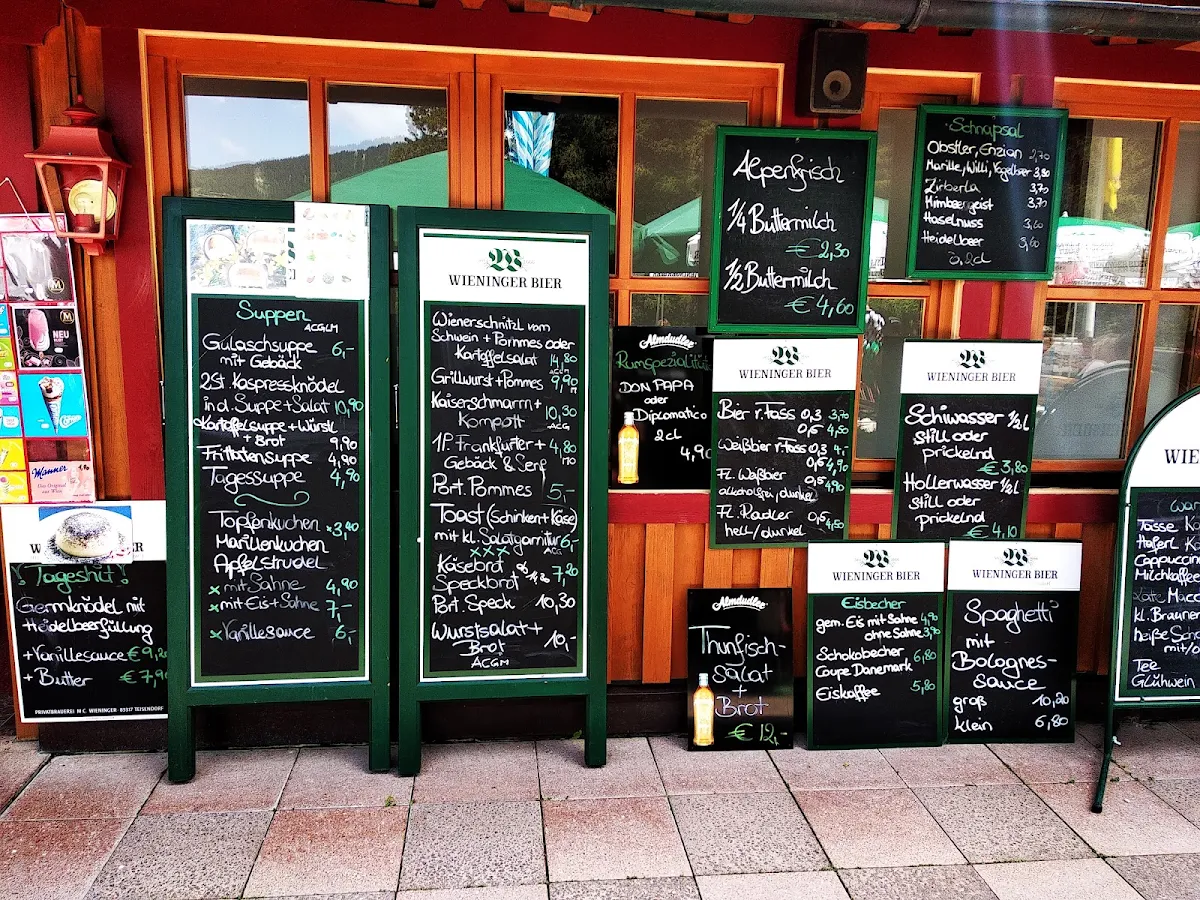 M
M
NEU
Manner
Das Original
aus Wien
Tageshit!
Germknödel mit
Heidelbeerfüllung
+Vanillesauce €9,20
+ Butter €7,90
PRIVATBRAUEREI M.C. WIENINGER · 83317 TEISENDORF
Suppen
ACGLM
Gulaschsuppe 6,-
mit Gebäck
2 St. Kaspressknödel
in d. Suppe + Salat 10,90
Kartoffelsuppe + Würstl
+ Brot 9,90
Frittatensuppe 4,90
Tagessuppe 4,90
Topfenkuchen 3,40
Marillenkuchen
Apfelstrudel
x mit Sahne 4,90
x mit Eis + Sahne 7,-
x Vanillesauce 6,-
WIENINGER BIER
Wienerschnitzl vom
Schwein + Pommes oder
Kartoffelsalat 14,80
ACGM
Grillwurst + Pommes 9,90
ACM
Kaiserschmarrn +
Kompott 10,30
ACG
1 P. Frankfurter + 4,80
Gebäck & Senf
Port. Pommes 5,-
Toast (Schinken + Käse)
mit kl. Salatgarnitur 6,-
xxx ACG
Käsebrot
Speckbrot 7,20
Port. Speck 10,30
Wurstsalat +
Brot 10,-
ACGM
Almdudler
Rumspezialität
DON PAPA
oder
Diplomatico
2cl
4,90
Alpenfrisch
1/4 Buttermilch
€ 2,30
1/2 Buttermilch
€ 4,60
Schnapsal
Obstler, Enzian 2,70
Marille, Willi, Vogelbeer 3,80
Zirberla 3,70
Himbeergeist 3,70
Haselnuss 3,60
Heidelbeer 3,60
á 2cl
WIENINGER BIER
Bier v. Fass 0,3 3,70
0,5 4,50
Weißbier v. Fass 0,3 4,-
0,5 4,90
Fl. Weißbier 0,5 4,90
alkoholfrei, dunkel
Fl. Radler 0,5 4,50
hell/dunkel
WIENINGER BIER
Schiwasser 1/2 l
still oder
prickelnd
€ 3,80
Hollerwasser 1/2 l
still oder
prickelnd
€ 4,10
Almdudler
Thunfisch-
salat
+
Brot
€ 12,-
WIENINGER BIER
Eisbecher
gem. Eis mit Sahne 4,90
ohne Sahne 3,90
Schokobecher 6,80
Coupe Danemark
Eiskaffee 5,80
WIENINGER BIER
Spaghetti
mit
Bolognes-
sauce
groß 10,20
klein 6,80
WIE
War
Tasse K
Haferl K
Cappuccin
Milchkaffe
Latte Macc
kl. Braune
heiße Scho
mit/o
Tee
Glühwein